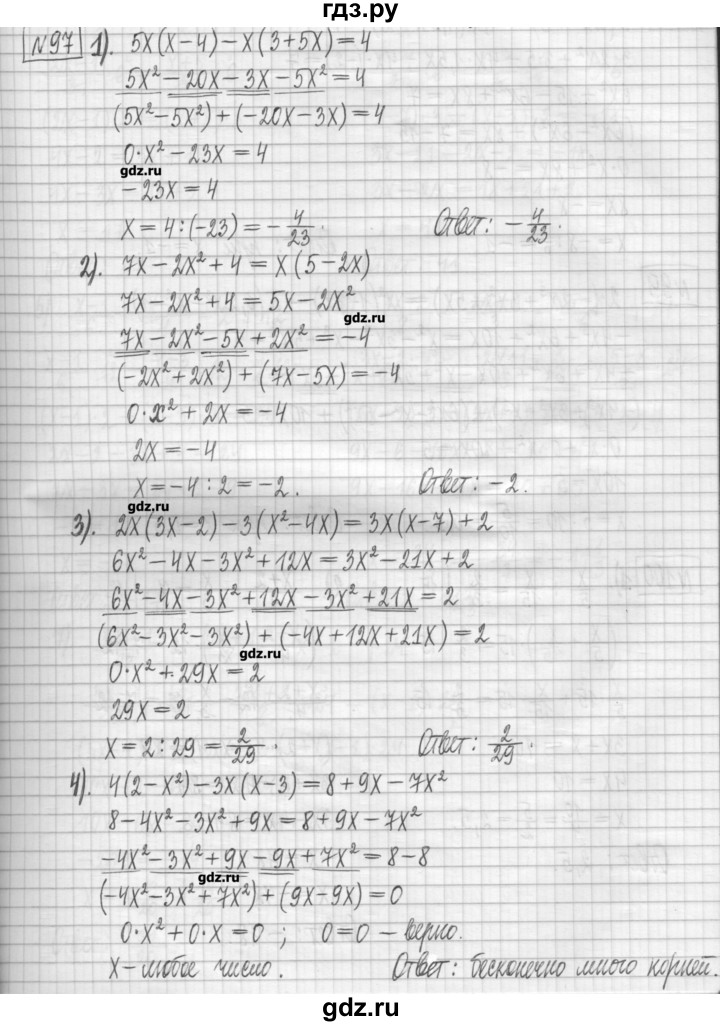 гдз.ру
№97 1). 5x(x-4)-x(3+5x)=4
5x²-20x-3x-5x²=4
(5x²-5x²)+(-20x-3x)=4
0·x²-23x=4
gdz.ru
-23x=4
x=4:(-23)=-4/23. Ответ: -4/23.
2). 7x-2x²+4=x(5-2x)
7x-2x²+4=5x-2x²
gdz.ru
7x-2x²-5x+2x²=-4
(-2x²+2x²)+(7x-5x)=-4
0·x²+2x=-4
2x=-4
x=-4:2=-2. Ответ: -2.
gdz.ru
3). 2x(3x-2)-3(x²-4x)=3x(x-7)+2
6x²-4x-3x²+12x=3x²-21x+2
6x²-4x-3x²+12x-3x²+21x=2
(6x²-3x²-3x²)+(-4x+12x+21x)=2
gdz.ru
0·x²+29x=2
29x=2
x=2:29=2/29. Ответ: 2/29.
4). 4(2-x²)-3x(x-3)=8+9x-7x²
8-4x²-3x²+9x=8+9x-7x²
-4x²-3x²+9x-9x+7x²=8-8
gdz.ru
(-4x²-3x²+7x²)+(9x-9x)=0
0·x²+0·x=0; 0=0 - верно.
x-любое число. Ответ: бесконечно много корней.
gdz.ru